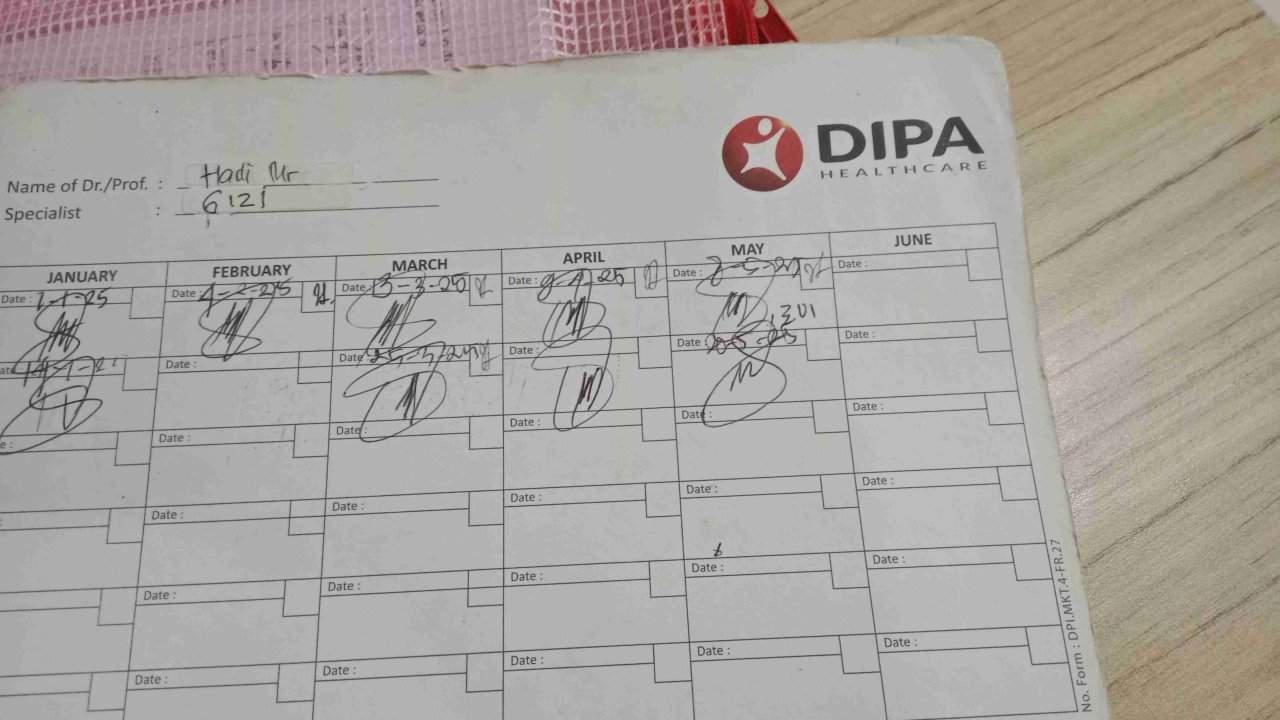 DIPA
HEALTHCARE
Name of Dr./Prof. : Hadi Mr
Specialist : 6121
JANUARY FEBRUARY MARCH APRIL MAY JUNE
Date : 7-1-25 Date : 4-2-25 Date : 3-3-25 Date : 9-4-25 Date : Date :
Date : Date : Date : Date : 20-5-25 Date :
Date : Date : Date : Date : Date :
Date : Date : Date : Date : Date :
Date : Date : Date : Date : Date :
Date : Date : Date : Date : Date :
No. Form : DPI.MKT.4-FR.27